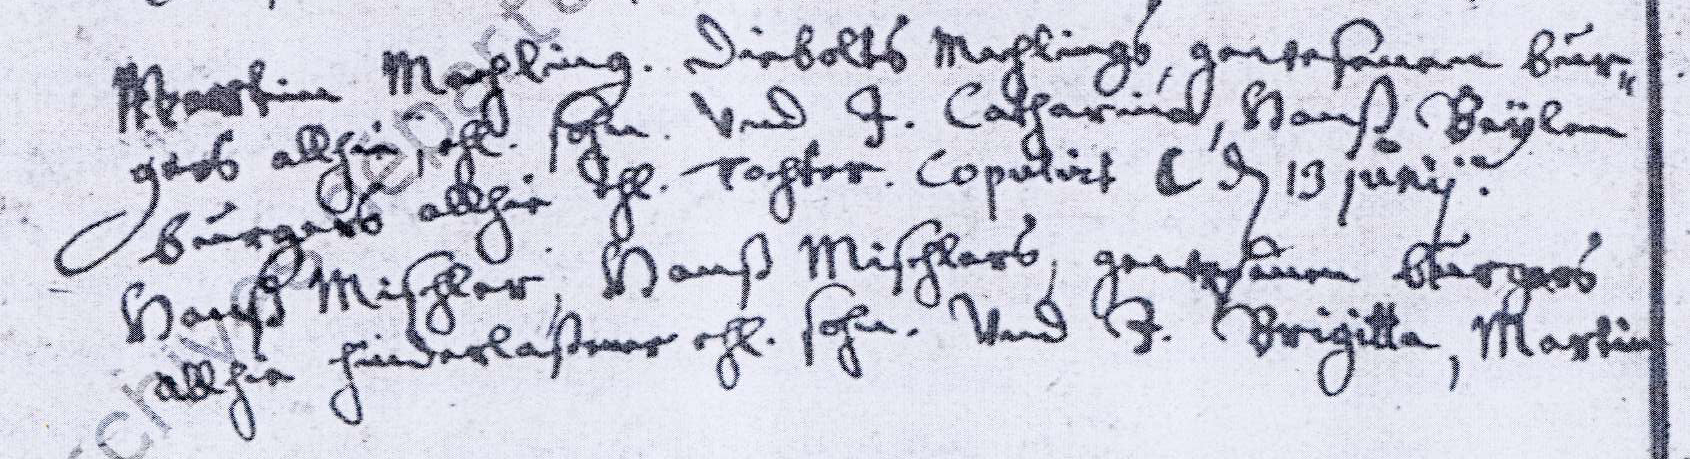 Martin Mechling. Diebolts Mechlings, gewesenen bur-
gers allhie, ehl. sohn. Vnd J. Catharina, Hanß Beÿlen
burgers allhie ehl. Tochter. Copulirt den 13 junij.
Hanß Mischler, Hanß Mischlers, gewesenen burgers
allhie hinderlaßener ehl. sohn. Vnd J. Brigitta, Martin